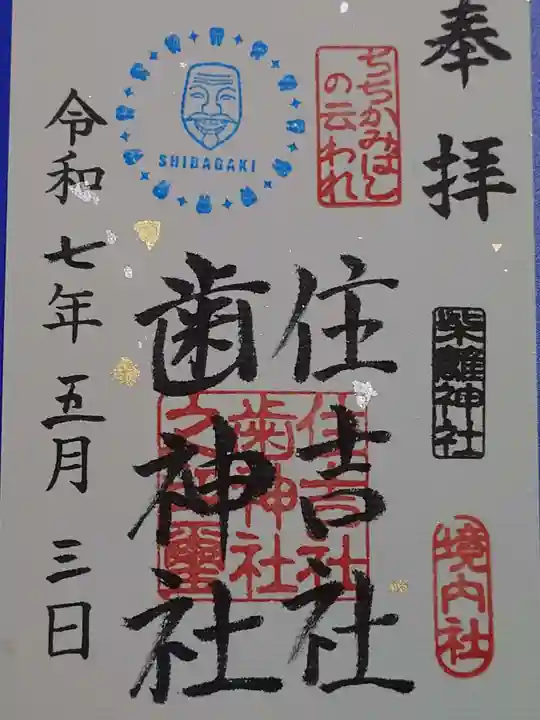 奉拝
柴籬神社
境内社
ちちかみばし
の云われ
住吉社
歯神社
住吉社
歯神社
之璽
SHIBAGAKI
令和七年五月三日